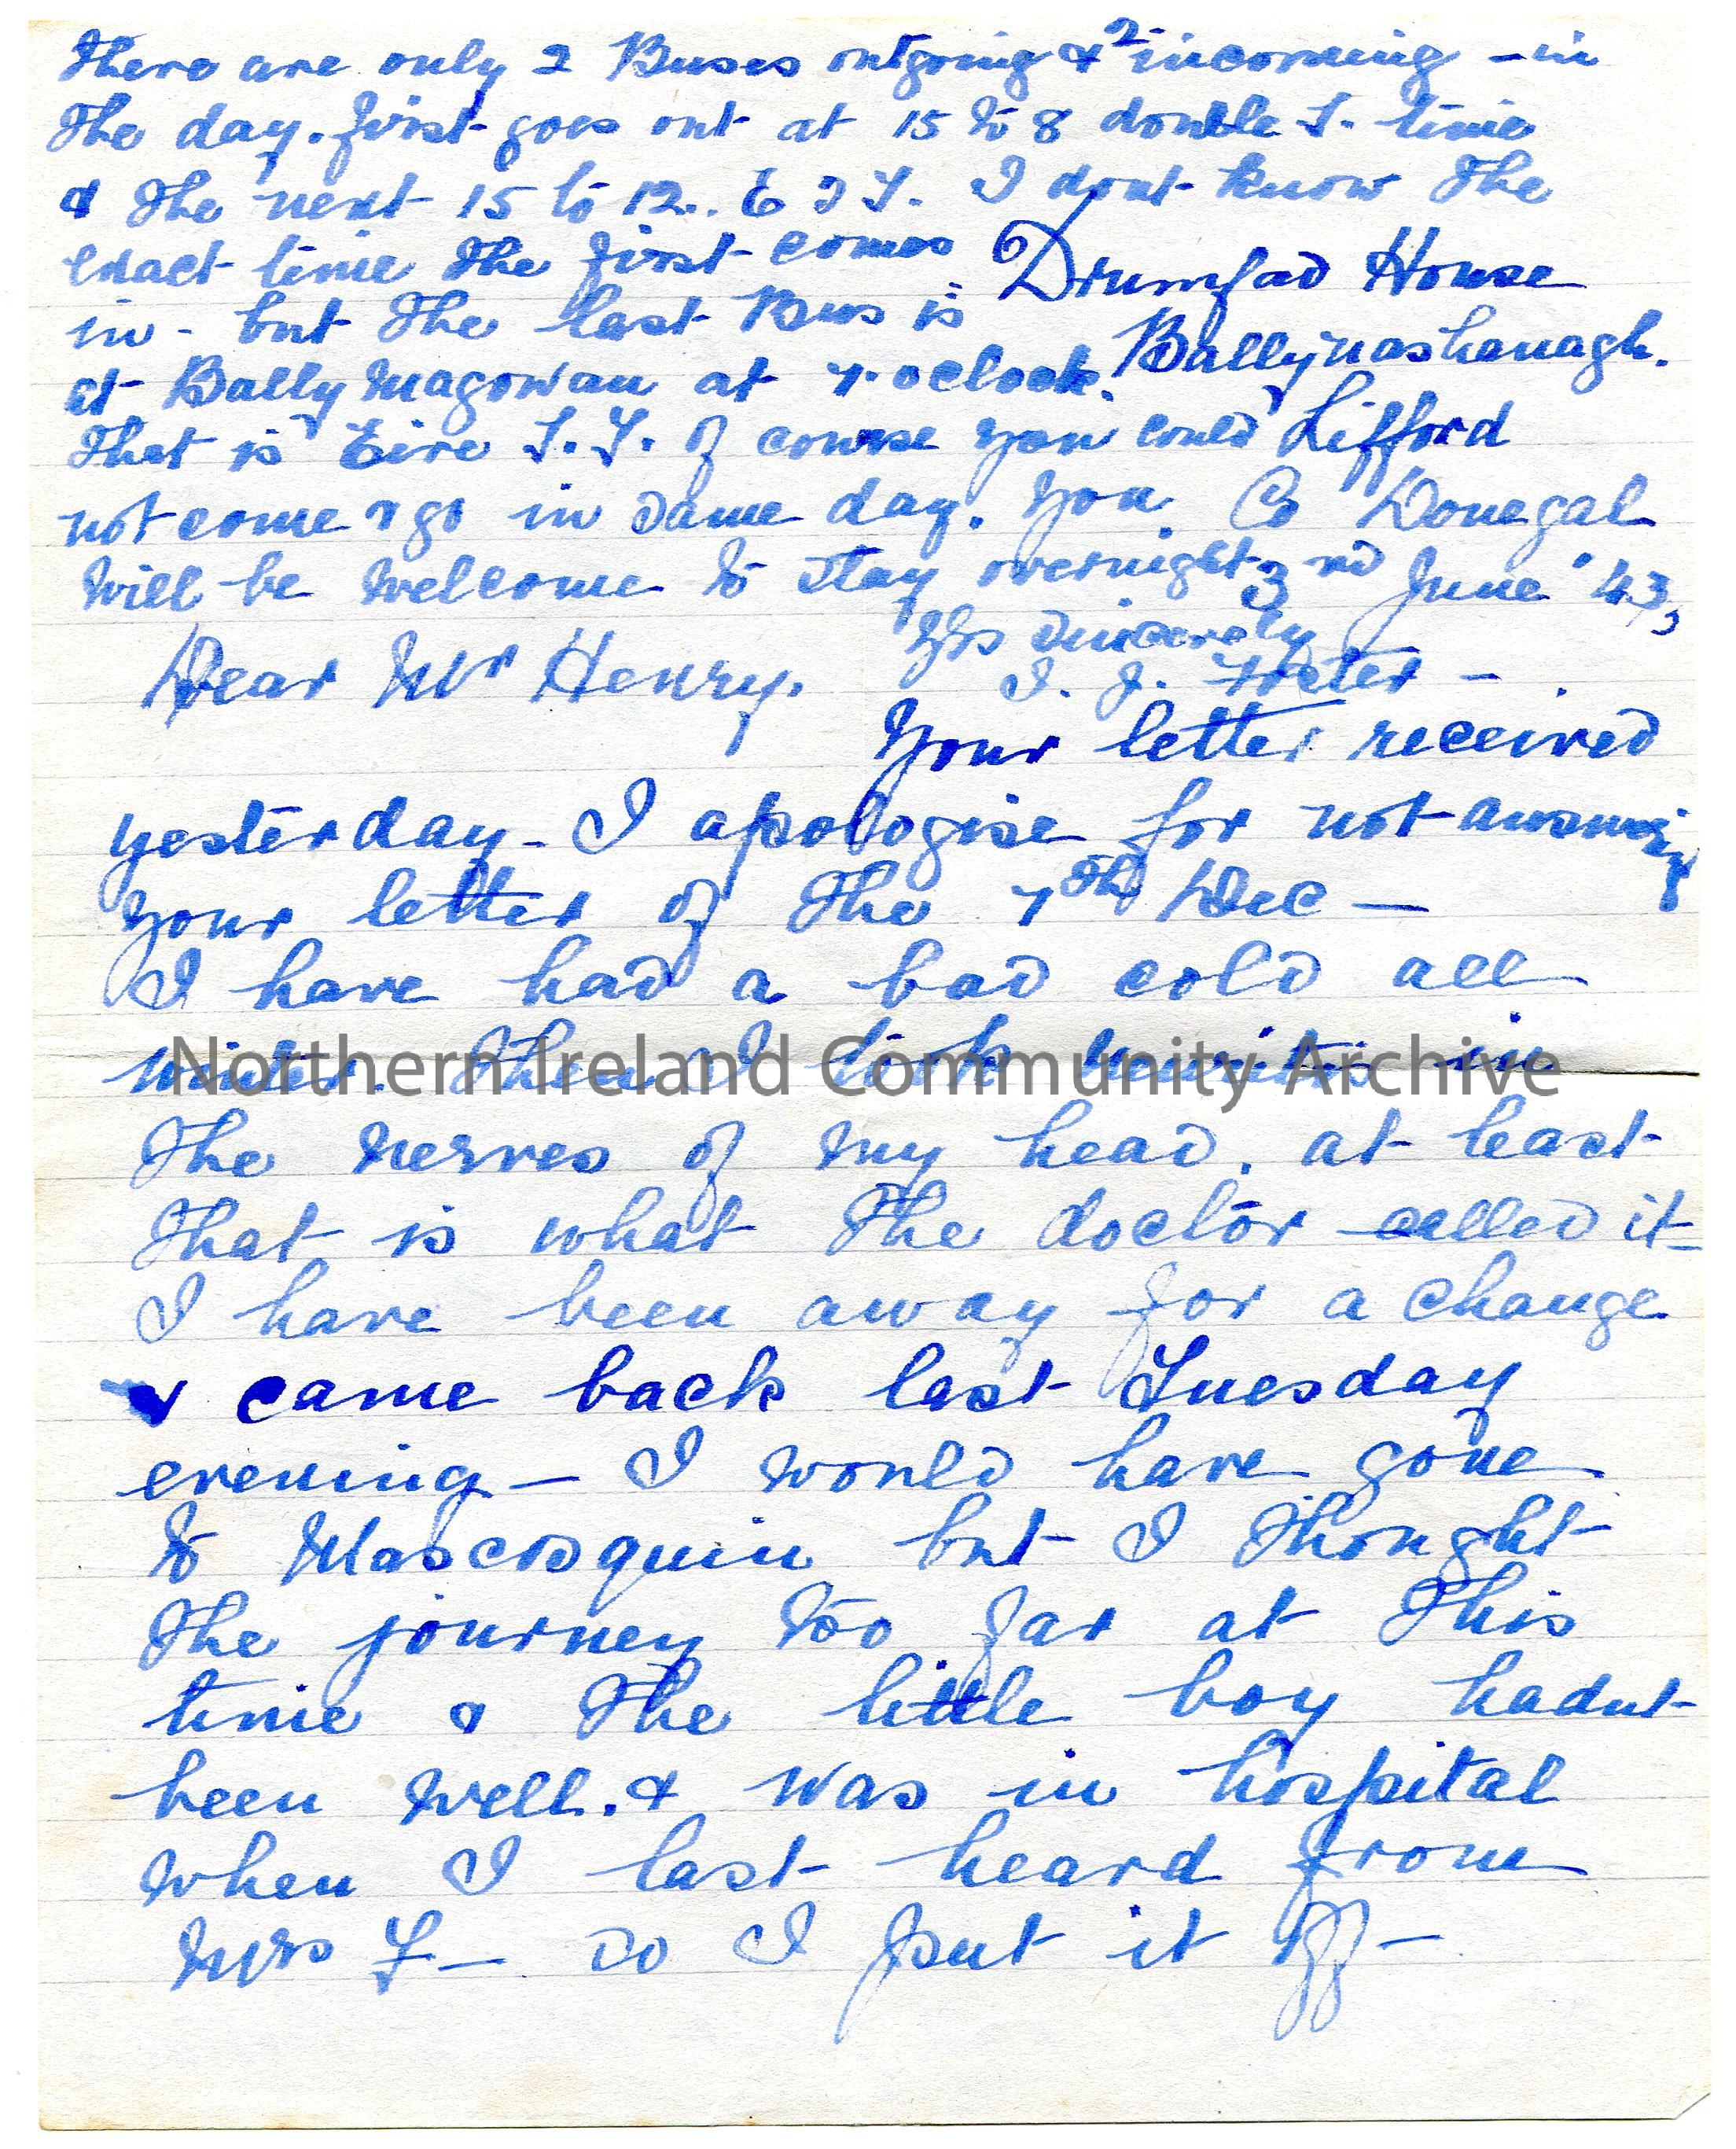 There are only 2 Buses outgoing & 2 incoming - in
the day. first goes out at 15 to 8 double S. time
& the next 15 to 12.. E S T. I dont know the
exact time the first comes
in - but the last Bus is
at Ballymagowan at 7. oclock.
That is Eire S.T. of course you could
not come & go in same day. You
will be welcome to stay overnight
Yrs sincerely
Drumfad House
Ballynashanagh.
Lifford
Co Donegal
3rd June '43,
Dear Mr Henry.
Your letter received
yesterday - I apologise for not answering
your letter of the 7th Dec -
I have had a bad cold all
winter. Then I took Neuritis in
the nerves of my head. at least
that is what the doctor called it -
I have been away for a change
& came back last Tuesday
evening - I would have gone
to Macosquin but I thought
the journey too far at this
time & the little boy hadnt
been well. & was in hospital
when I last heard from
Mrs F - so I put it off -
Northern Ireland Community Archive